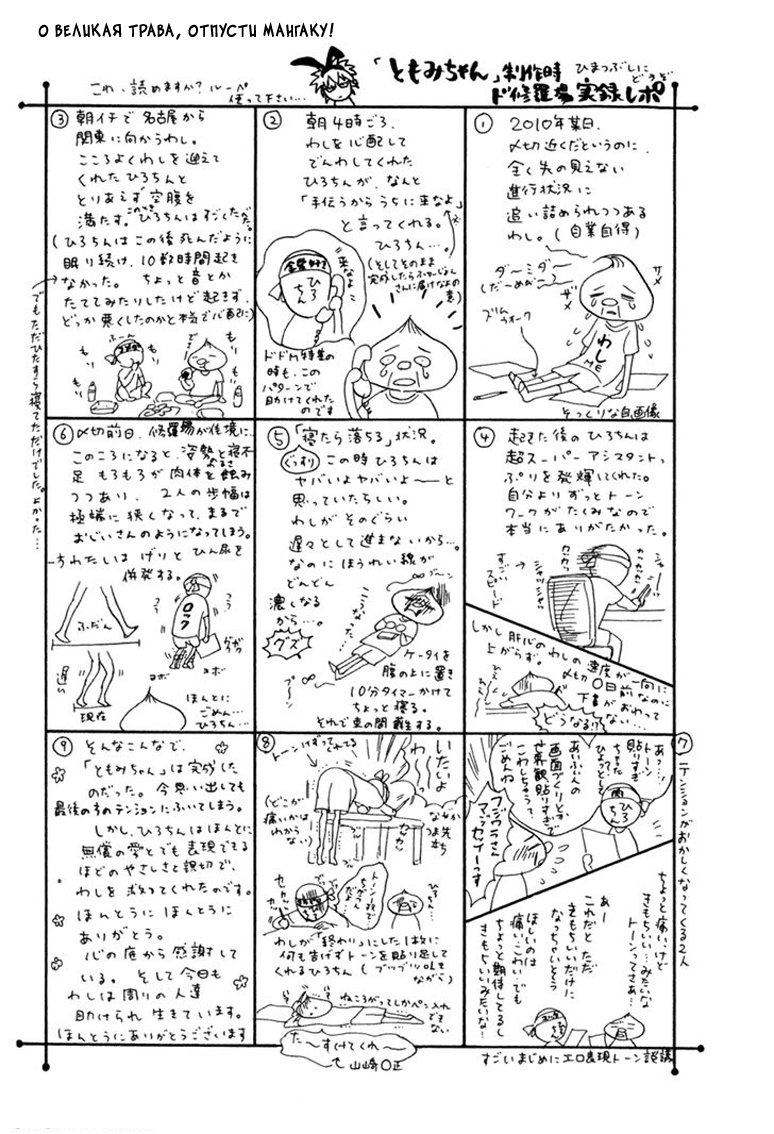 О ВЕЛИКАЯ ТРАВА, ОТПУСТИ МАНГАКУ!
「ともみちゃん」制作時
ド修羅場実録レポ
ひまつぶしに
どうぞ
これ、読めますか?ルーペ
使って下さい…
①
2010年某日、
〆切近くだというのに
全く先の見えない
進行状況に
追い詰められつつある
わし。(自業自得)
ダーミダー
(だーめだー)
サメ
ザメ
わし
ME
そっくりな自画像
②
朝4時ごろ、
わしを心配して
でんわしてくれた
ひろちんが、なんと
「手伝うからうちに来なよ」
と言ってくれる。
ひろちん…。
(そしてそのまま
完成したら
さんに届けなよの
意)
来なよ
ひろちん
ドドド特集の
時も、この
パターンで
助けてくれた
のです
③
朝イチで名古屋から
関東に向かうわし。
こころよくわしを迎えて
くれたひろちんと
とりあえず空腹を
満たす。
このとき
ひろちんはすごくただ
(ひろちんはこの後死んだように
眠り続け、10数時間起き
なかった。ちょっと音とか
たててみたりしたけど起きず、
どっか悪くしたのかと本当で心配に)
でもただひたすら寝てただけでした。よかった…
もり
もり
もり
④
起きた後のひろちんは
超スーパーアシスタントっ
ぷりを発揮してくれた。
自分よりずっとトーン
ワークがたくみなので
本当にありがたかった。
すごい
スピード
カッカッ
しかし肝心のわしの速度が一向に
上がらず。
〆切〇日前なのに
下書がおわって
ない…
どうなる!?
⑤
「寝たら落ちる」状況。
ぐっすり
この時ひろちんは
ヤバいよヤバいよ〜と
思っていたらしい。
わしがそのぐらい
遅々として進まないから…。
なのにほうれい線が
どんどん
濃くなる
から…。
グズ
ケータイを
腹の上に置き
10分タイマーかけて
ちょっと寝る。
⑥
〆切前日、修羅場が佳境に…
このころになると、姿勢と寝不
足もろもろが肉体を蝕み
つつあり、2人の歩幅は
極端に狭くなって、まるで
おじいさんのようになってしまう。
わたしは げりとひん尿を
併発する。
ふだん
遅い
現在
ロック
ヨボ
ヨボ
ほんとに
ごめん…
ひろちん…
⑦
テンションがおかしくなってくる2人
あ?…
トーン
貼りすぎ
ちゃった
ひょっとして
ひろちん
あいぶんの
画面づくりとか
世界観貼りすぎで
こわしちゃうって
ごめんね
フジウラさん
マジセイーっす
ちょっと痛いけど
きもちいい…みたいな
トーンってさあ…
あー
これだとただ
きもちいいだけに
なっちゃいそう
ほしいのは
痛いこわいでも
ちょっと期待してるし
きもちいいみたいな…
すごいまじめにエロ表現トーン談議
⑧
トーンけずってみてる
いたいよ
わー
(どこが
痛いかは
わから
ない)
なぜか
つま先
立ち
ひろちん…
わしが「終わり」にした1枚に
何も告げずトーンを貼り足して
くれるひろちん(ブツブツ
ながら)
ねころがってしかペン入れ
できない
た〜すけてくれ〜
で 山崎〇正
⑨
そんなこんなで、
「ともみちゃん」は完成した
のだった。今思い出しても
最後の方のテンションにふいてしまう。
しかし、ひろちんはほんとに
無償の愛とでも表現できる
ほどのやさしさと親切で、
わしを救ってくれたのです。
ほんとうにほんとうに
ありがとう。
心の底から感謝して
いる。そして今日も
わしは周りの人達
助けられ生きています。
ほんとうにありがとうございます